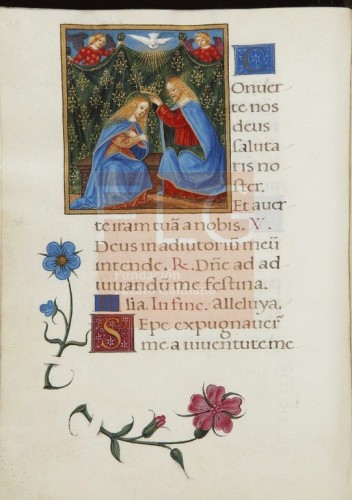 C
Onuer
te nos
deus
saluta
ris no
ster.
Et auer
te iram tuā a nobis. V.
Deus in adiutoriū meū
intende. R. Dn̄e ad ad
iuuandū me festina.
lia. In fine. alleluya,
SEpe expugnauer̄
me a iuuentute me